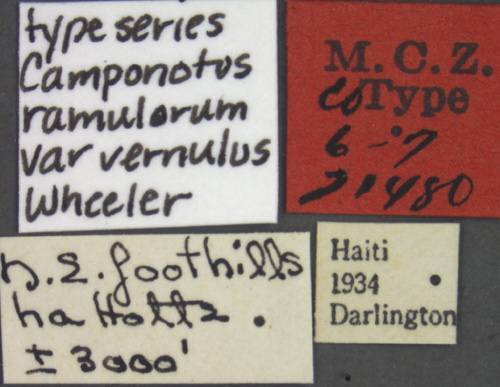 type series
Camponotus
ramulorum
var vernulus
Wheeler
M.C.Z.
CoType
6-7
21480
n.E. foothills
La Hotte.
± 3000'
Haiti
1934
Darlington